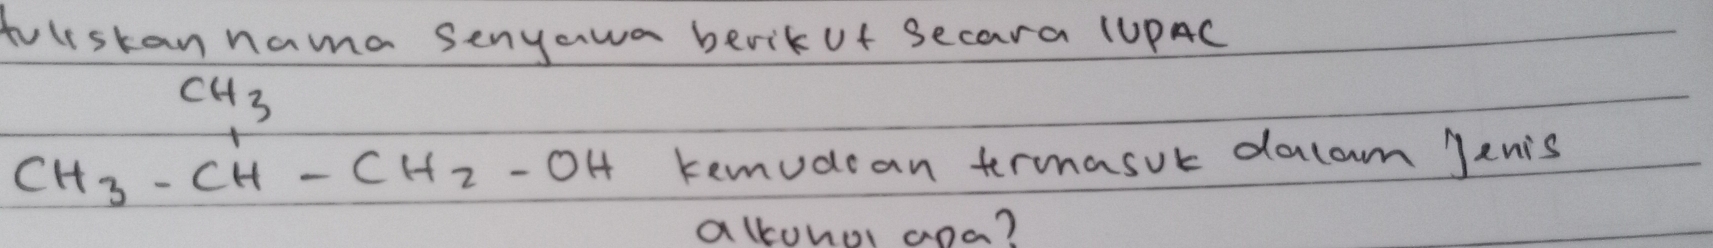 tuliskan nama senyawa berikut secara IUPAC
CH3
CH3 - CH - CH2 - OH kemudian termasuk dalam Jenis
alkohol apa?